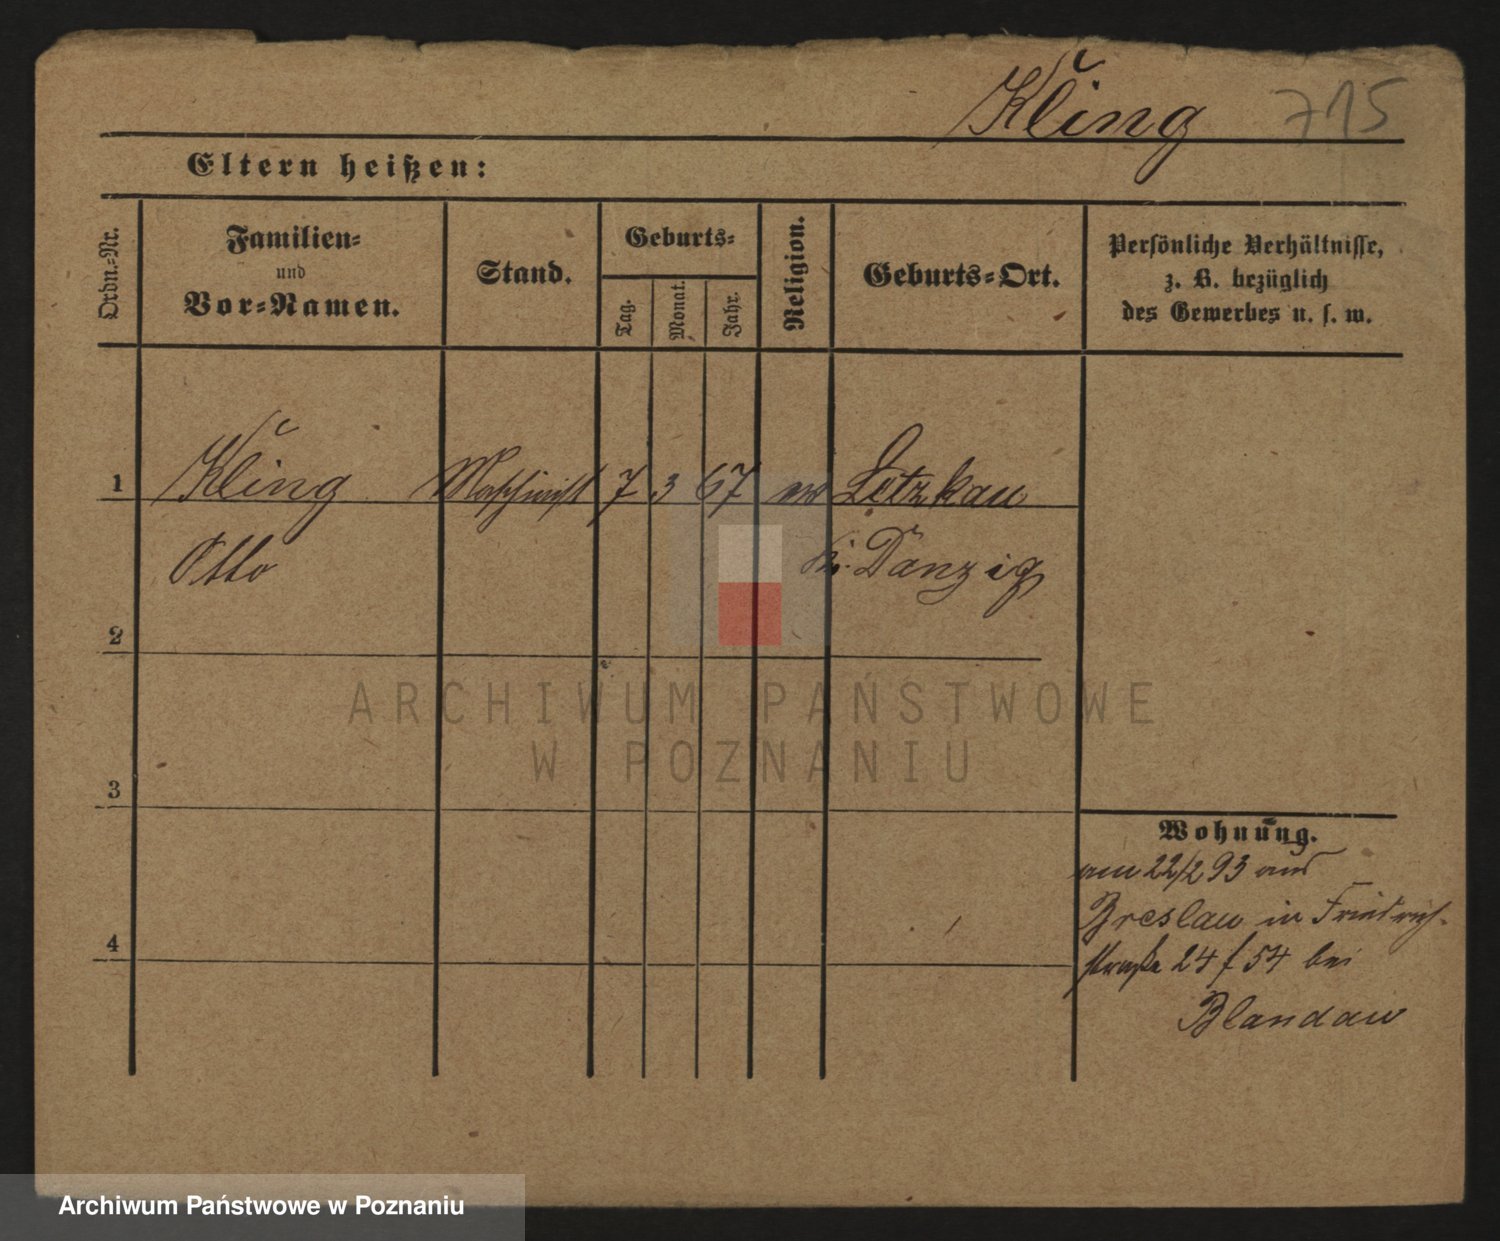 Kling 715
Eltern heißen:
Ordn.-Nr.
Familien-
und
Vor-Namen.
Stand.
Geburts-
Tag.
Monat.
Jahr.
Religion.
Geburts-Ort.
Persönliche Verhältnisse,
z. B. bezüglich
des Gewerbes u. s. w.
1 Kling Maschinist 7 3 67 ev Letzkau
Otto Kr. Danzig
2
ARCHIWUM PAŃSTWOWE
W POZNANIU
3
Wohnung.
am 22/2 93 aus
Breslau in Friedrich-
straße 24 f 54 bei
4
Blandau
Archiwum Państwowe w Poznaniu